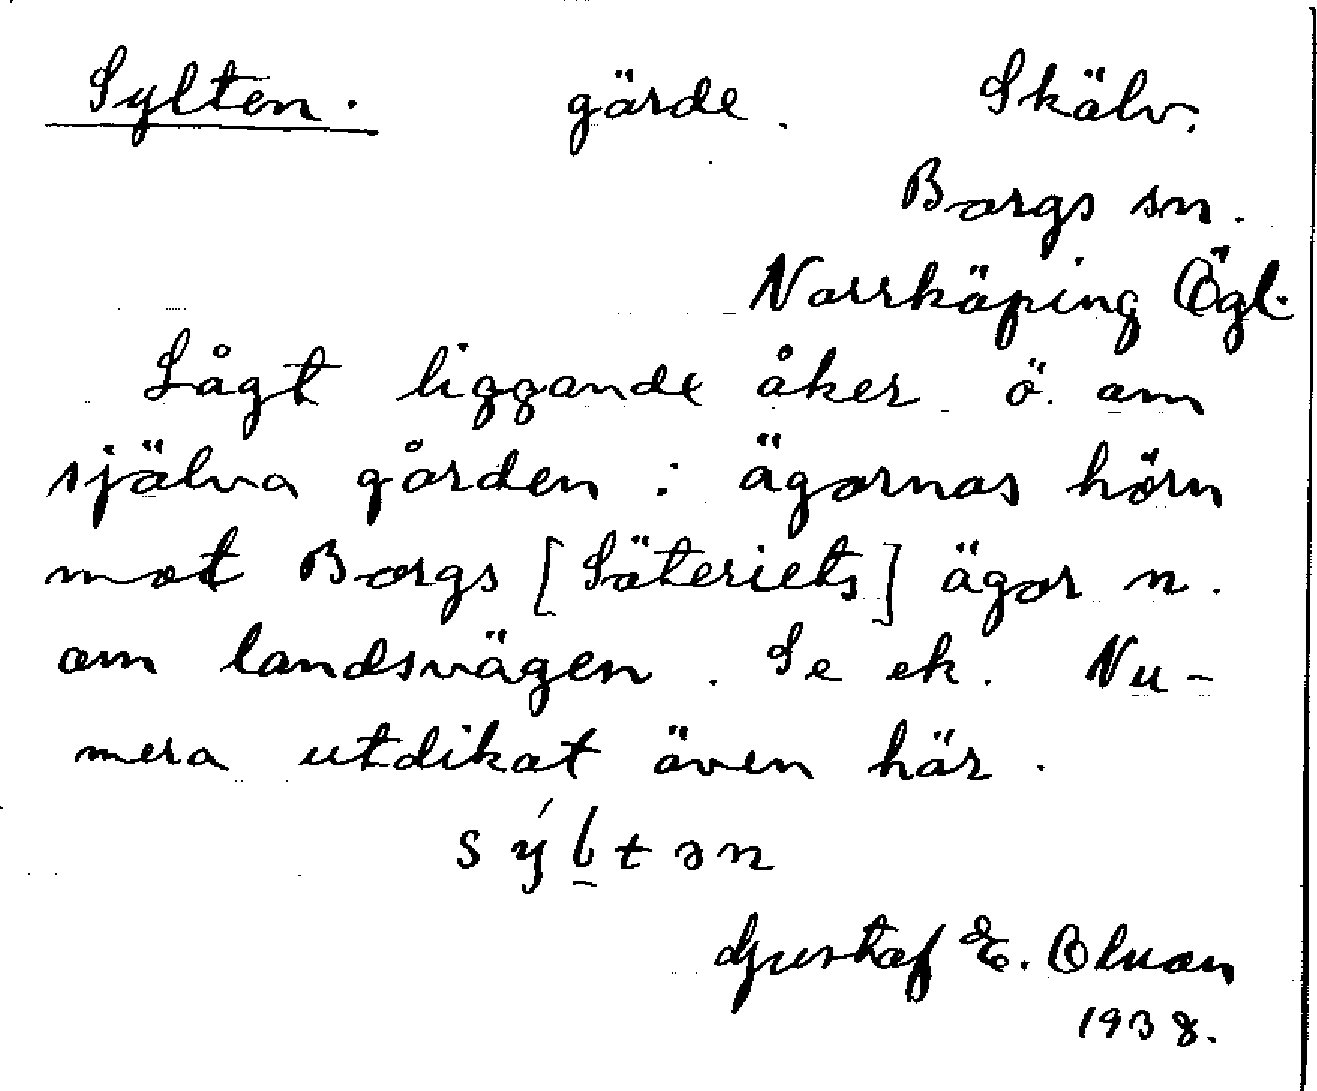 Sylten. gärde. Skälv.
Borgs sn.
Norrköping Ögl.
Lågt liggande åker ö. om
själva gården i ägornas hörn
mot Borgs [Säteriets] ägor n.
om landsvägen. Se ek. Nu-
mera utdikat även här.
sýltən
Gustaf E. Olsson
1938.